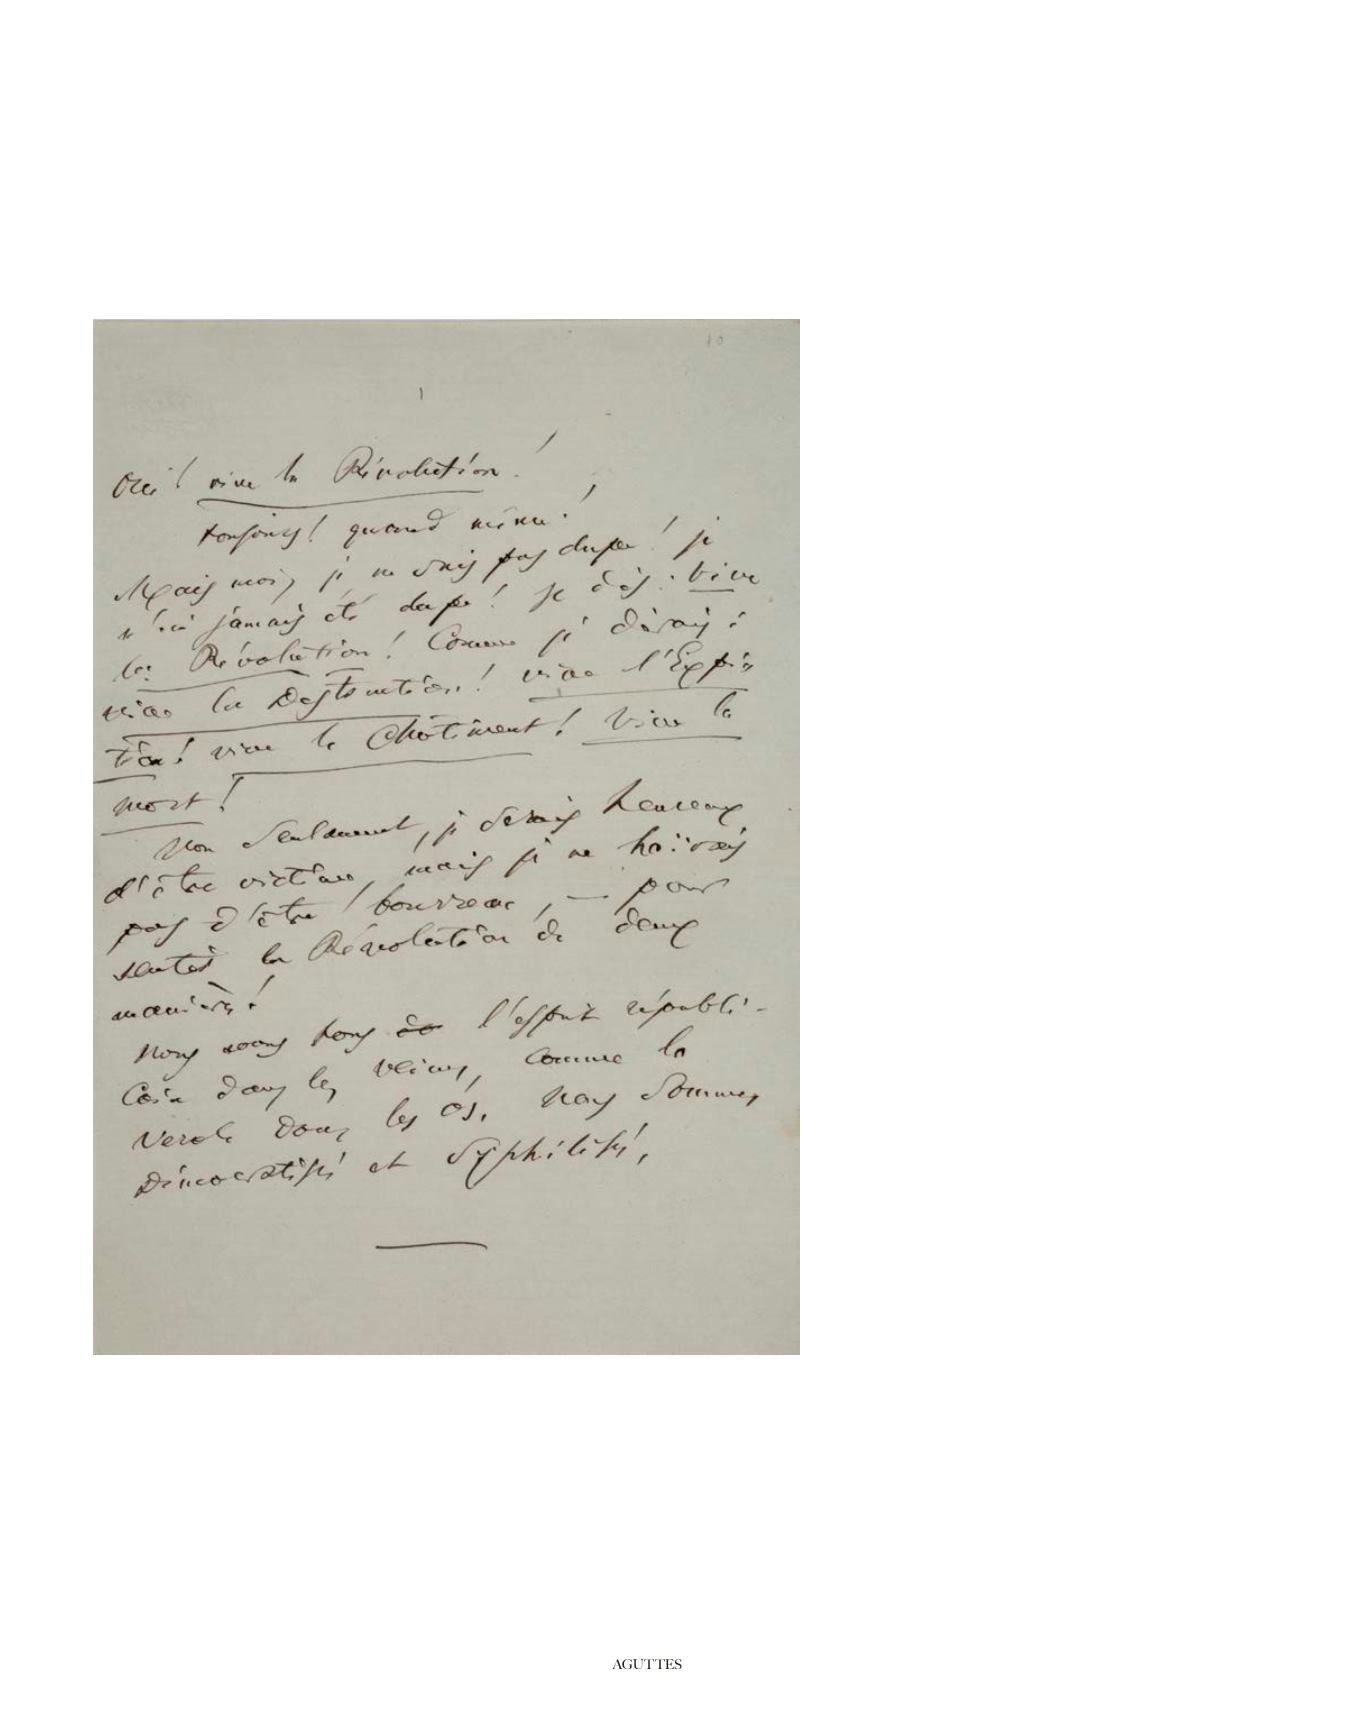 10
1
Oui! vive la Révolution!
toujours! quand même!
Mais moi, je ne suis pas dupe! je
n'ai jamais été dupe! Je dis: Vive
la Révolution! Comme je dirais:
vive la Destruction! vive l'Expia
tion! vive le Châtiment! Vive la
mort!
Non seulement, je serais heureux
d'être victime, mais je ne haïrais
pas d'être bourreau, — pour
sentir la Révolution de deux
manières!
Nous avons tous l'esprit républi-
cain dans les veines, comme la
vérole dans les os. Nous sommes
Démocratisés et Syphilisés,
AGUTTES